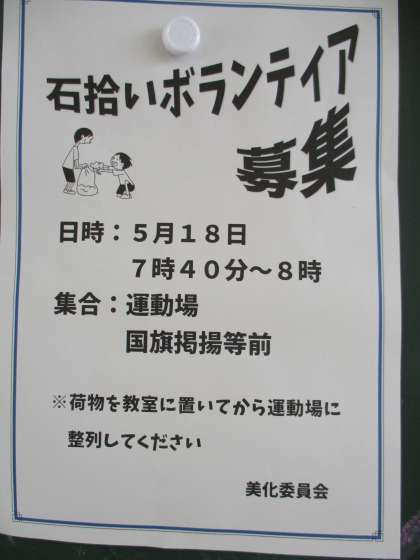 石拾いボランティア
募集
日時：５月１８日
７時４０分～８時
集合：運動場
国旗掲揚等前
※荷物を教室に置いてから運動場に
整列してください
美化委員会